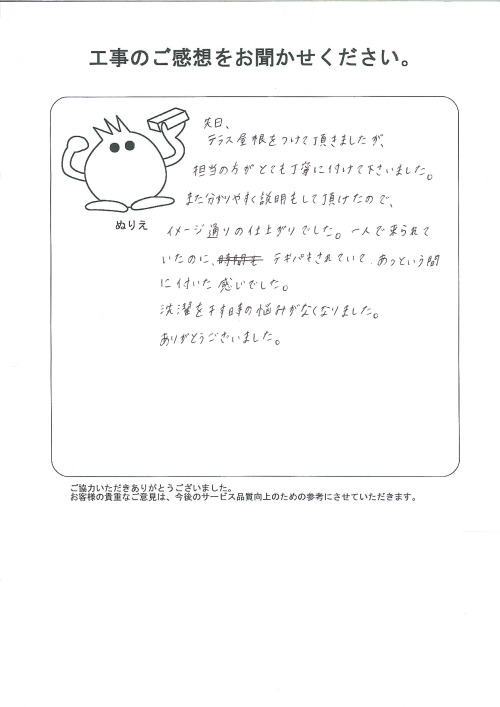 工事のご感想をお聞かせください。
先日、
テラス屋根をつけて頂きましたが、
担当の方がとても丁寧に付けて下さいました。
また分かりやすく説明もして頂けたので、
ぬりえ
イメージ通りの仕上がりでした。一人で来られて
いたのに、時間も テキパキされていて、あっという間
に付いた感じでした。
洗濯を干す時の悩みがなくなりました。
ありがとうございました。
ご協力いただきありがとうございました。
お客様の貴重なご意見は、今後のサービス品質向上のための参考にさせていただきます。